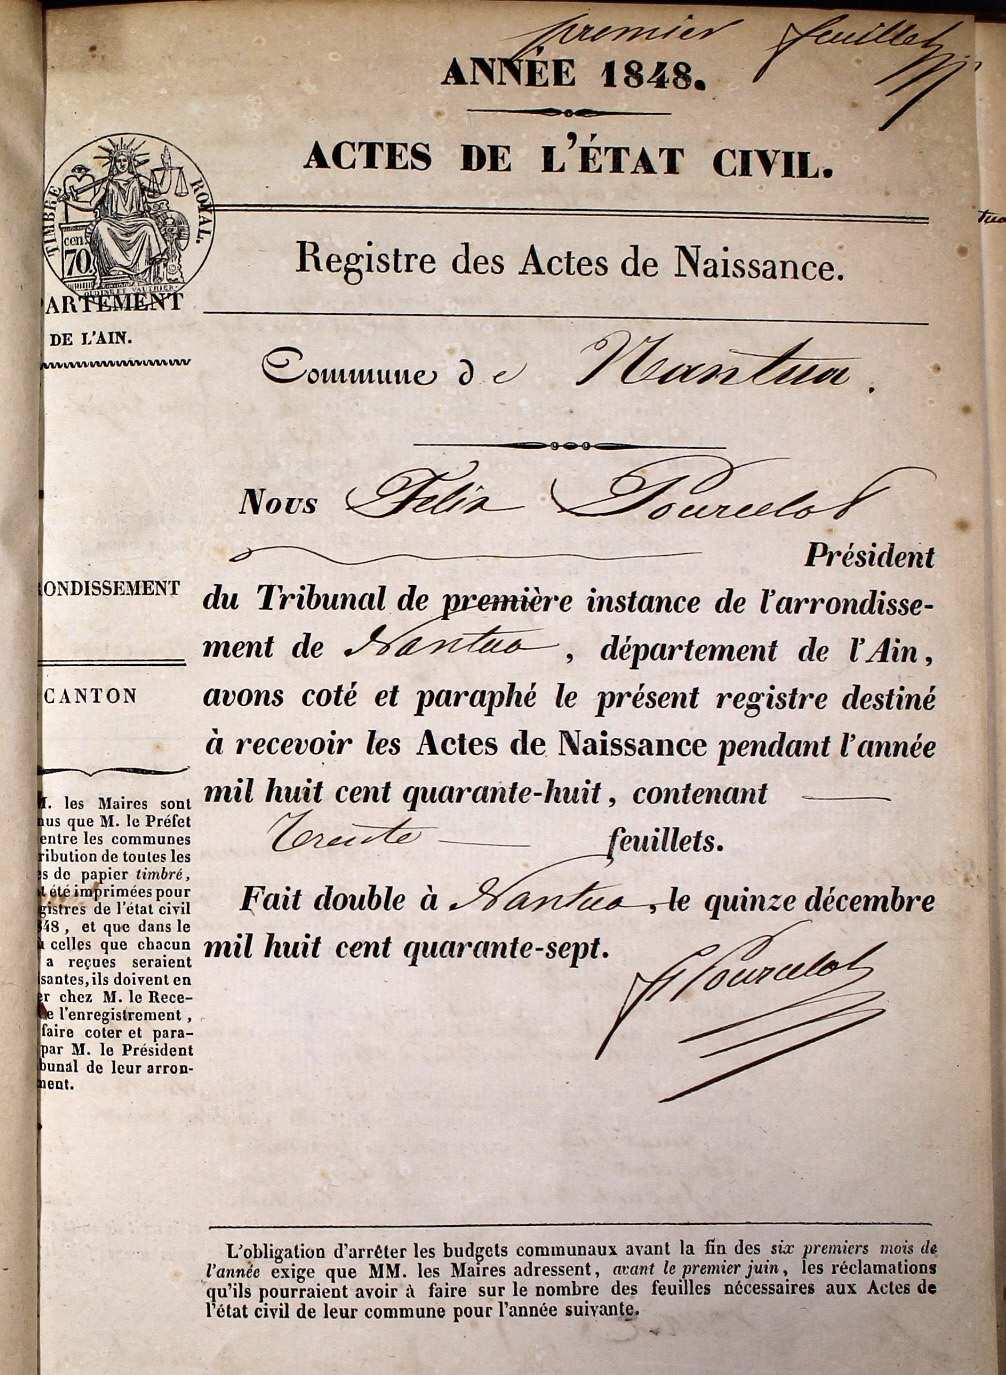 premier feuillet
ANNÉE 1848.
ACTES DE L'ÉTAT CIVIL.
TIMBRE ROYAL.
cen.
70
Registre des Actes de Naissance.
ARTEMENT
DE L'AIN.
Commune de Nantua.
Nous Félix Pourcelot
Président
du Tribunal de première instance de l'arrondisse-
ment de Nantua, département de l'Ain,
avons coté et paraphé le présent registre destiné
à recevoir les Actes de Naissance pendant l'année
mil huit cent quarante-huit, contenant
Trente feuillets.
Fait double à Nantua, le quinze décembre
mil huit cent quarante-sept.
F Pourcelot
ONDISSEMENT
CANTON
M. les Maires sont
nus que M. le Préfet
entre les communes
ribution de toutes les
s de papier timbré,
t été imprimées pour
gistres de l'état civil
48, et que dans le
celles que chacun
a reçues seraient
santes, ils doivent en
er chez M. le Rece-
e l'enregistrement,
faire coter et para-
par M. le Président
bunal de leur arron-
ment.
L'obligation d'arrêter les budgets communaux avant la fin des six premiers mois de
l'année exige que MM. les Maires adressent, avant le premier juin, les réclamations
qu'ils pourraient avoir à faire sur le nombre des feuilles nécessaires aux Actes de
l'état civil de leur commune pour l'année suivante.